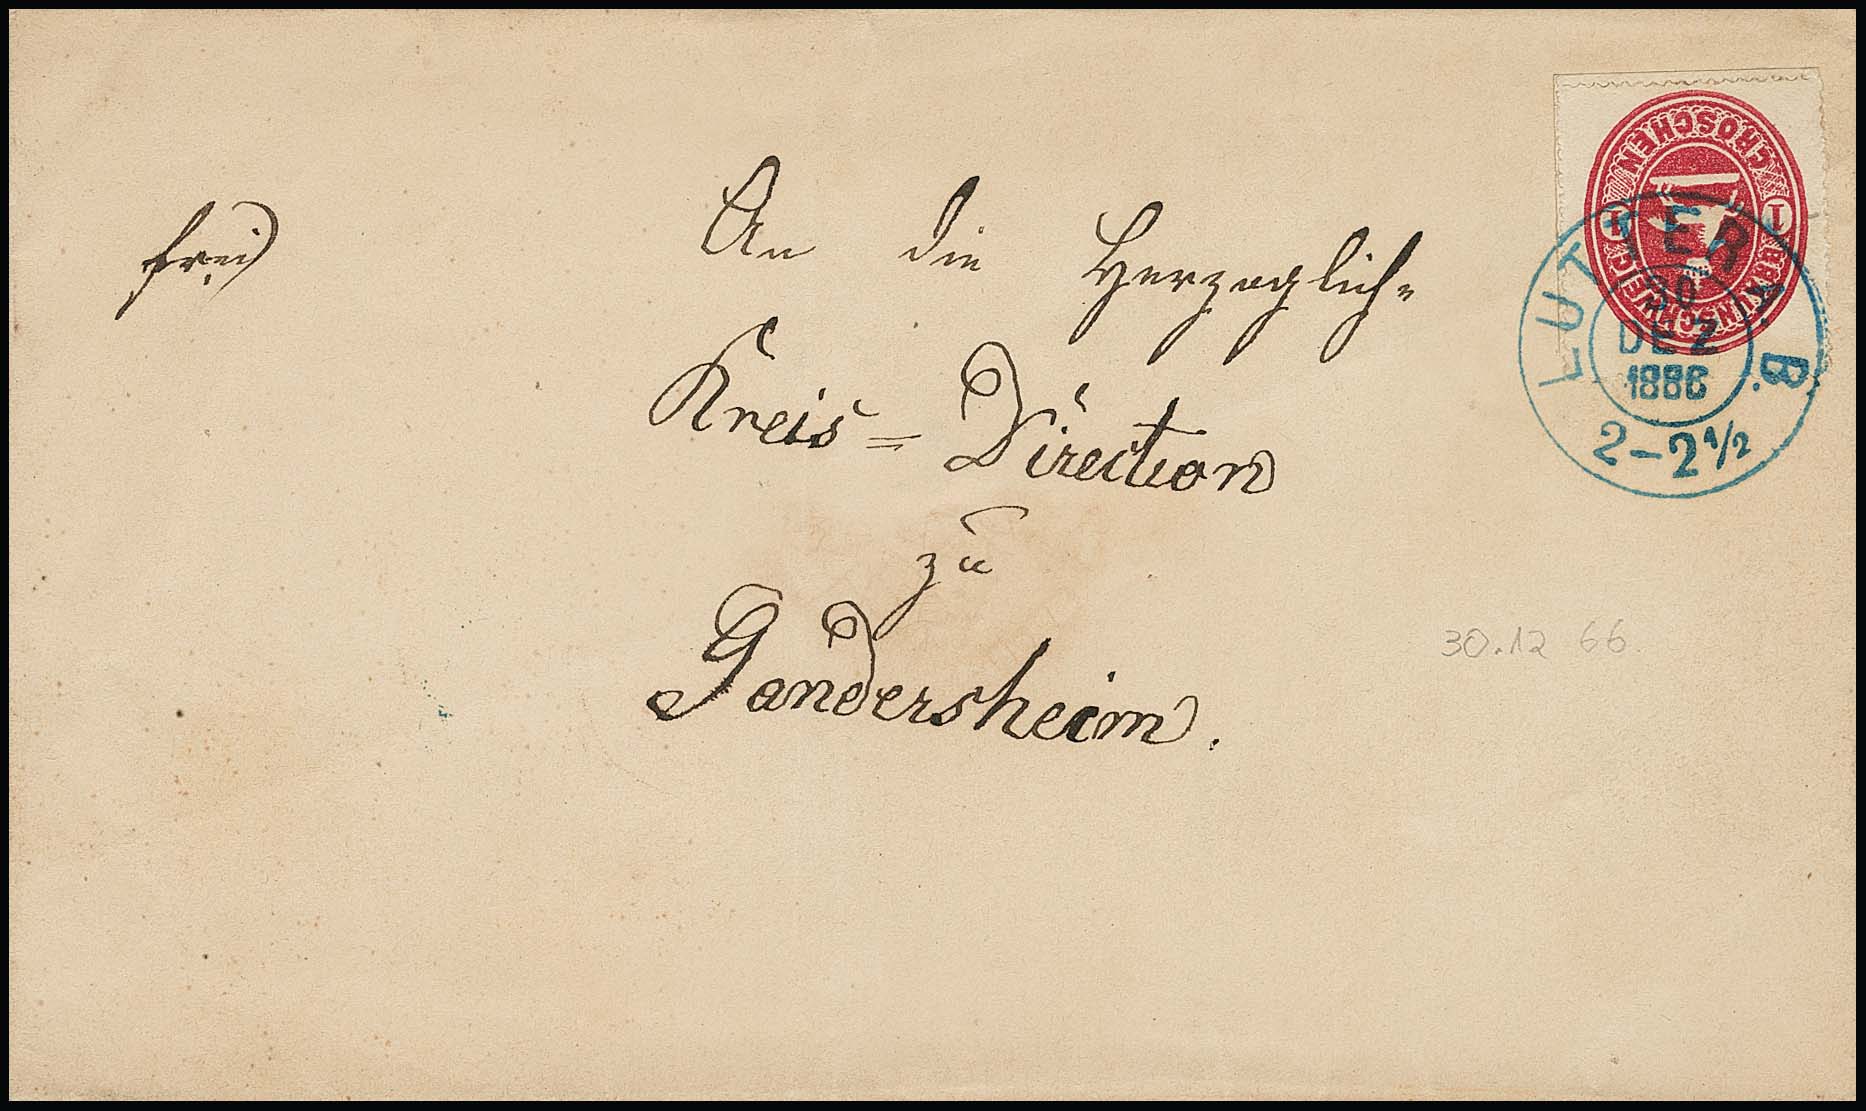 frei
An die Herzoglich=
Kreis=Direction
zu
Gandersheim.
1 GROSCHEN 1
BRAUNSCHWEIG
LUTTER A. B.
30
DEZ
1866
2-2 1/2
30.12 66.